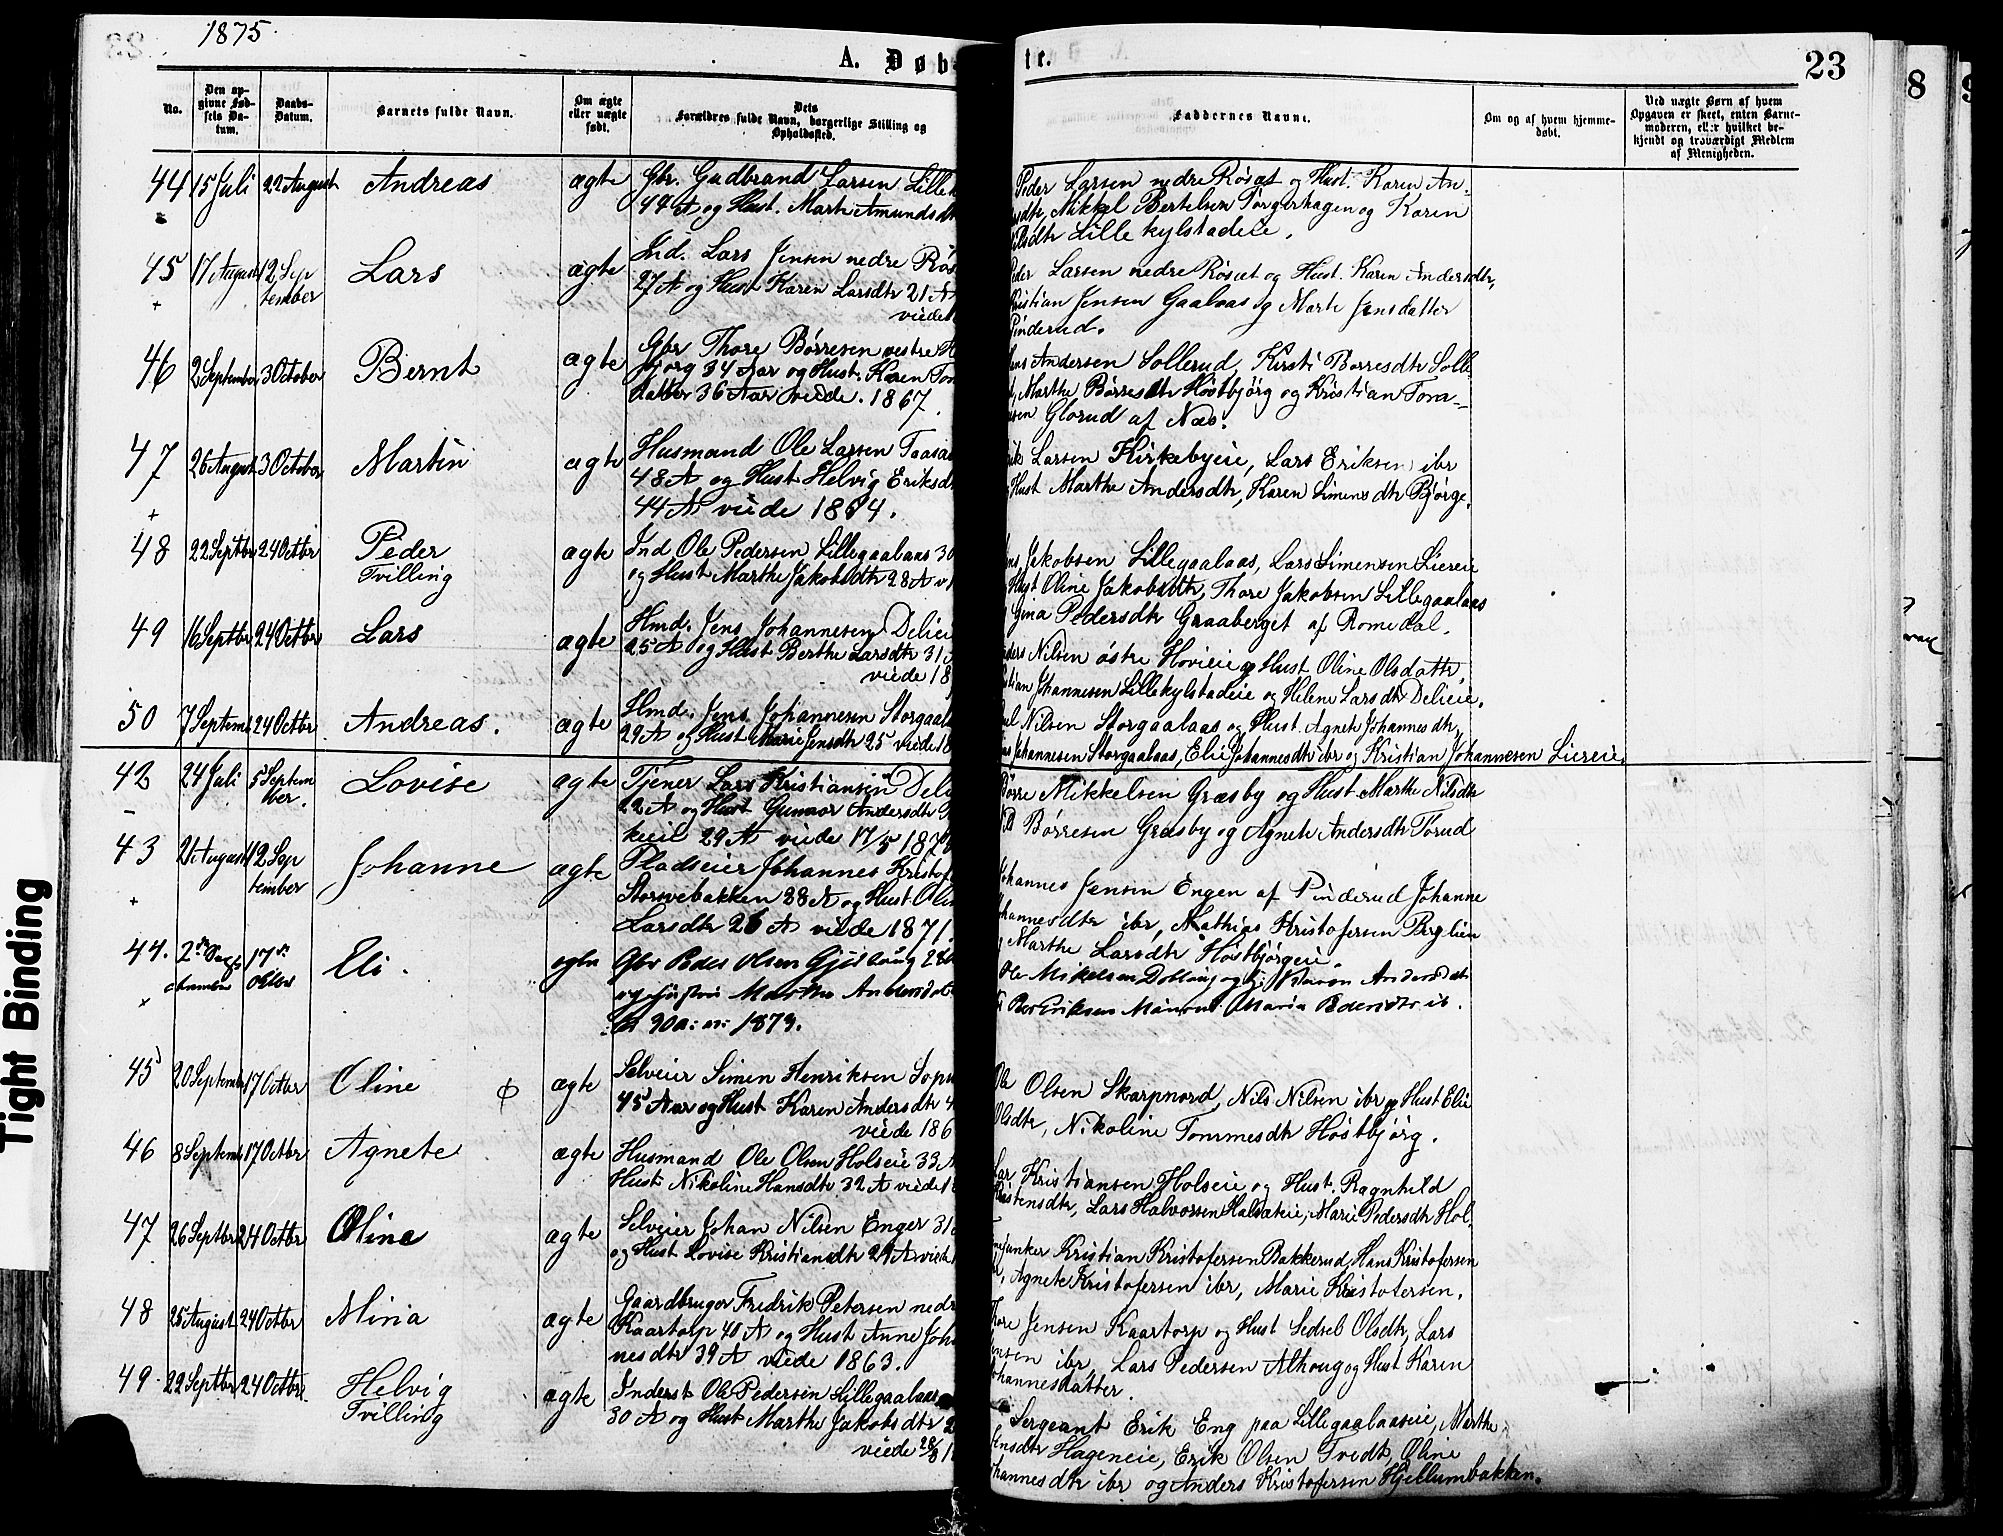 1875
A. Døb-
tr.
23
8
No.
Den op-
givne Fød-
sels Da-
tum.
Daabs-
Datum.
Barnets fulde Navn.
Om ægte
eller uægte
født.
Dets
Forældres fulde Navn, borgerlige Stilling og
Opholdssted.
Faddernes Navne.
Om og af hvem hjemme-
døbt.
Ved uægte Børn af hvem
Opgaven er skeet, enten Barne-
moderen, eller hvilket be-
kjendt og troværdigt Medlem
af Menigheden.
44 15 Juli 22 August Andreas ægte Gbr. Gudbrand Larsen Lille
44 A og Hust. Marte Amundsdt
Peder Larsen nedre Røsæt og Hust. Karen An-
Mikkel Bertelsen Torgerhagen og Karen
Lillekylstadeie.
45 17 August 12 Sep
tember Lars ægte Ind. Lars Jensen nedre Røs
27 A og Hust Karen Larsdtr 21 A
viede
Peder Larsen nedre Røsæt og Hust. Karen Andersdtr,
Kristian Jensen Gaalaas og Marte Jensdatter
Pinderud.
46 2 September 3 October Bernt ægte Gbr Thore Børresen vestre H
bjørg 34 Aar og Hust. Karen Tom
datter 36 Aar viede. 1867.
Andersen Sollerud, Kirsti Børresdtr Solle
Marthe Børresdtr Høstbjørg og Kristian Tom-
Glorud af Næs.
47 26 August 3 October Martin ægte Husmand Ole Larsen Taasa
48 A og Hust Helvig Eriksdt
44 A viede 1864.
Larsen Kirkebyeie, Lars Eriksen ibr
Hust Marthe Andersdtr, Karen Simensdtr Bjørge.
48 22 Septbr 24 Octbr Peder
Tvilling ægte Ind Ole Pedersen Lillegaalaas 30
og Hust Marthe Jakobsdtr 28 A v
Jakobsen Lillegaalaas, Lars Simensen Liereie
Hust Oline Jakobsdtr, Thore Jakobsen Lillegaalaas
Gina Pedersdtr Graaberget af Romedal.
49 16 Septbr 24 Octbr Lars ægte Hmd. Jens Johannesen Delieie
25 A og Hust Berthe Larsdtr 31
viede 18
Nilsen østre Hovieie og Hust Oline Olsdatter,
Johannesen Lillekylstadeie og Helene Larsdtr Delieie.
50 7 Septemb 24 Octbr Andreas. ægte Hmd. Jens Johannesen Storgaala
29 A og Hust Marie Jensdtr 25 viede 18
Nilsen Storgaalaas og Hust. Agnete Johannesdtr,
Johannesen Storgaalaas, Elie Johannesdtr ibr og Kristian Johannesen Liereie.
42 24 Juli 5 Septem
ber. Lovise ægte Tjener Lars Kristiansen Deli
22 A og Hust Gunnor Andersdtr
keeie 29 A viede 17/5 187
Børre Mikkelsen Græsby og Hust Marthe Nilsdtr
Børresen Græsby og Agnete Andersdtr Torud
43 21 August 12 Sep
tember Johanne ægte Pladseier Johannes Kristof
Storsvebakken 28 A og Hust Olin
Larsdtr 26 A viede 1871.
Johannes Jensen Engen af Pinderud Johanne
ibr, Mathias Kristofersen Berglien
Marthe Larsdtr Høstbjørgeie.
44. 2 Sep
tember 17
Oktbr Eli. egte Gbr Peder Olsen Gjeslaug 28
og Hustru Marthe Andersdt
30 a: v: 1873.
Ole Mikelsen Dollaug og h Karen Andersdt
Per Eriksen Maria Pedersdtr ib.
45 20 Septembr 17 Octbr Oline ægte Selveier Simen Henriksen Sopu
45 Aar og Hust Karen Andersdtr 4
viede 186
Ole Olsen Skarpnord, Nils Nilsen ibr og Hust Elie
Olsdtr, Nikoline Tommesdtr Høstbjørg.
46 8 Septemb 17 Octbr Agnete ægte Husmand Ole Olsen Holseie 33 A
Hust. Nikoline Hansdtr 32 A viede 1
Lar Kristiansen Holseie og Hust. Ragnhild
Kristensdtr, Lars Halvorsen Halsæteie, Marie Pedersdtr Hol-
47 26 Septbr 24 Octbr Oline ægte Selveier Johan Nilsen Enger 31
og Hust Lovise Kristiansdtr 24 A viede
Ungkarl Kristian Kristofersen Bakkerud, Hans Kristofersen
Agnete Kristofersen ibr, Marie Kristofersen.
48 25 August 24 Octbr Mina ægte Gaardbruger Fredrik Petersen nedr
Kaartorp 40 A og Hust Anne Joha
nesdtr 39 A viede 1863.
Thore Jensen Kaartorp og Hust Sedseb Olsdtr, Lars
Jensen ibr, Lars Pedersen Alhoug og Hust Karen
Johannesdatter.
49. 22 Septbr 24 Octbr Helvig
Tvilling ægte Inderst Ole Pedersen Lillegaalaas
30 A og Hust Marthe Jakobsdtr 2
viede 28/8 1
Sergeant Erik Eng paa Lillegaalaaseie, Marthe
Jensdtr Hageneie, Erik Olsen Tvedt, Oline
Johannesdtr ibr og Anders Kristofersen Hjellumbakken.
Tight Binding